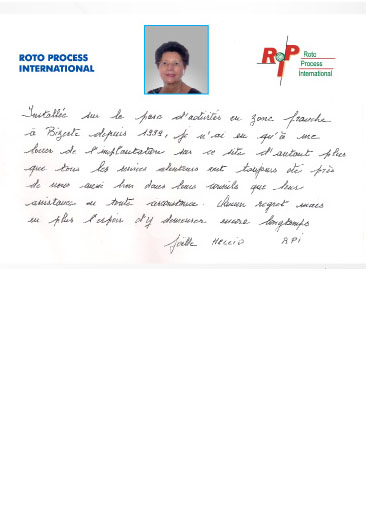 ROTO PROCESS
INTERNATIONAL
RIP
Roto
Process
International
Installée sur le parc d'activités en zone franche
à Bizerte depuis 1999, je n'ai eu qu'à me
louer de l'implantation sur ce site d'autant plus
que tous les services alentours ont toujours été près
de nous aussi bien dans leurs conseils que leur
assistance en toute circonstance. Aucun regret mais
en plus l'espoir d'y demeurer encore longtemps
Joëlle HELLIO RPI